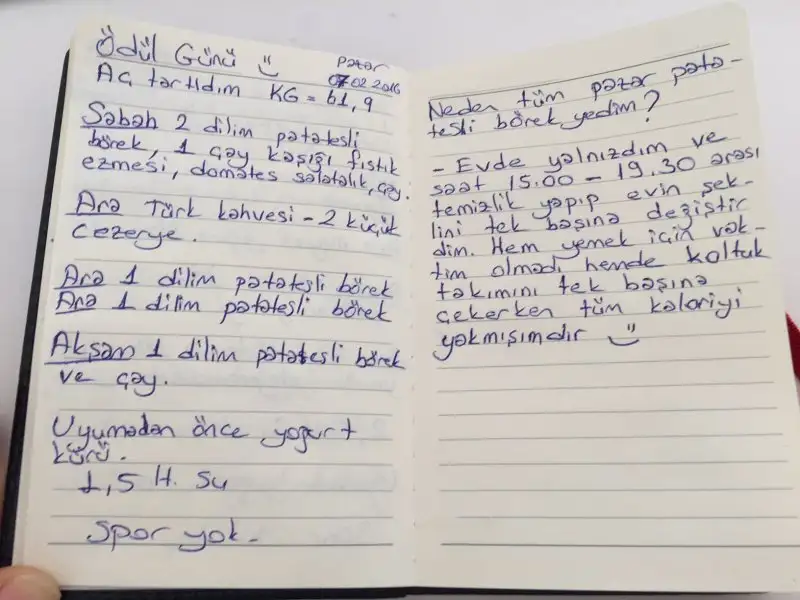 Ödül Günü
Pazar
07.02.2016
Aç tartıldım KG = 61,9
Sabah 2 dilim patatesli
börek, 1 çay kaşığı fıstık
ezmesi, domates salatalık, çay.
Ara Türk kahvesi - 2 küçük
cezerye.
Ara 1 dilim patatesli börek
Ara 1 dilim patatesli börek
Akşam 1 dilim patatesli börek
ve çay.
Uyumadan önce yogurt
kürü.
1,5 lt. Su
Spor yok.
Neden tüm pazar pata-
tesli börek yedim?
- Evde yalnızdım ve
saat 15.00 - 19.30 arası
temizlik yapıp evin şek-
lini tek başına değiştir
dim. Hem yemek için vak-
tim olmadı hemde koltuk
takımını tek başına
çekerken tüm kaloriyi
yakmışımdır